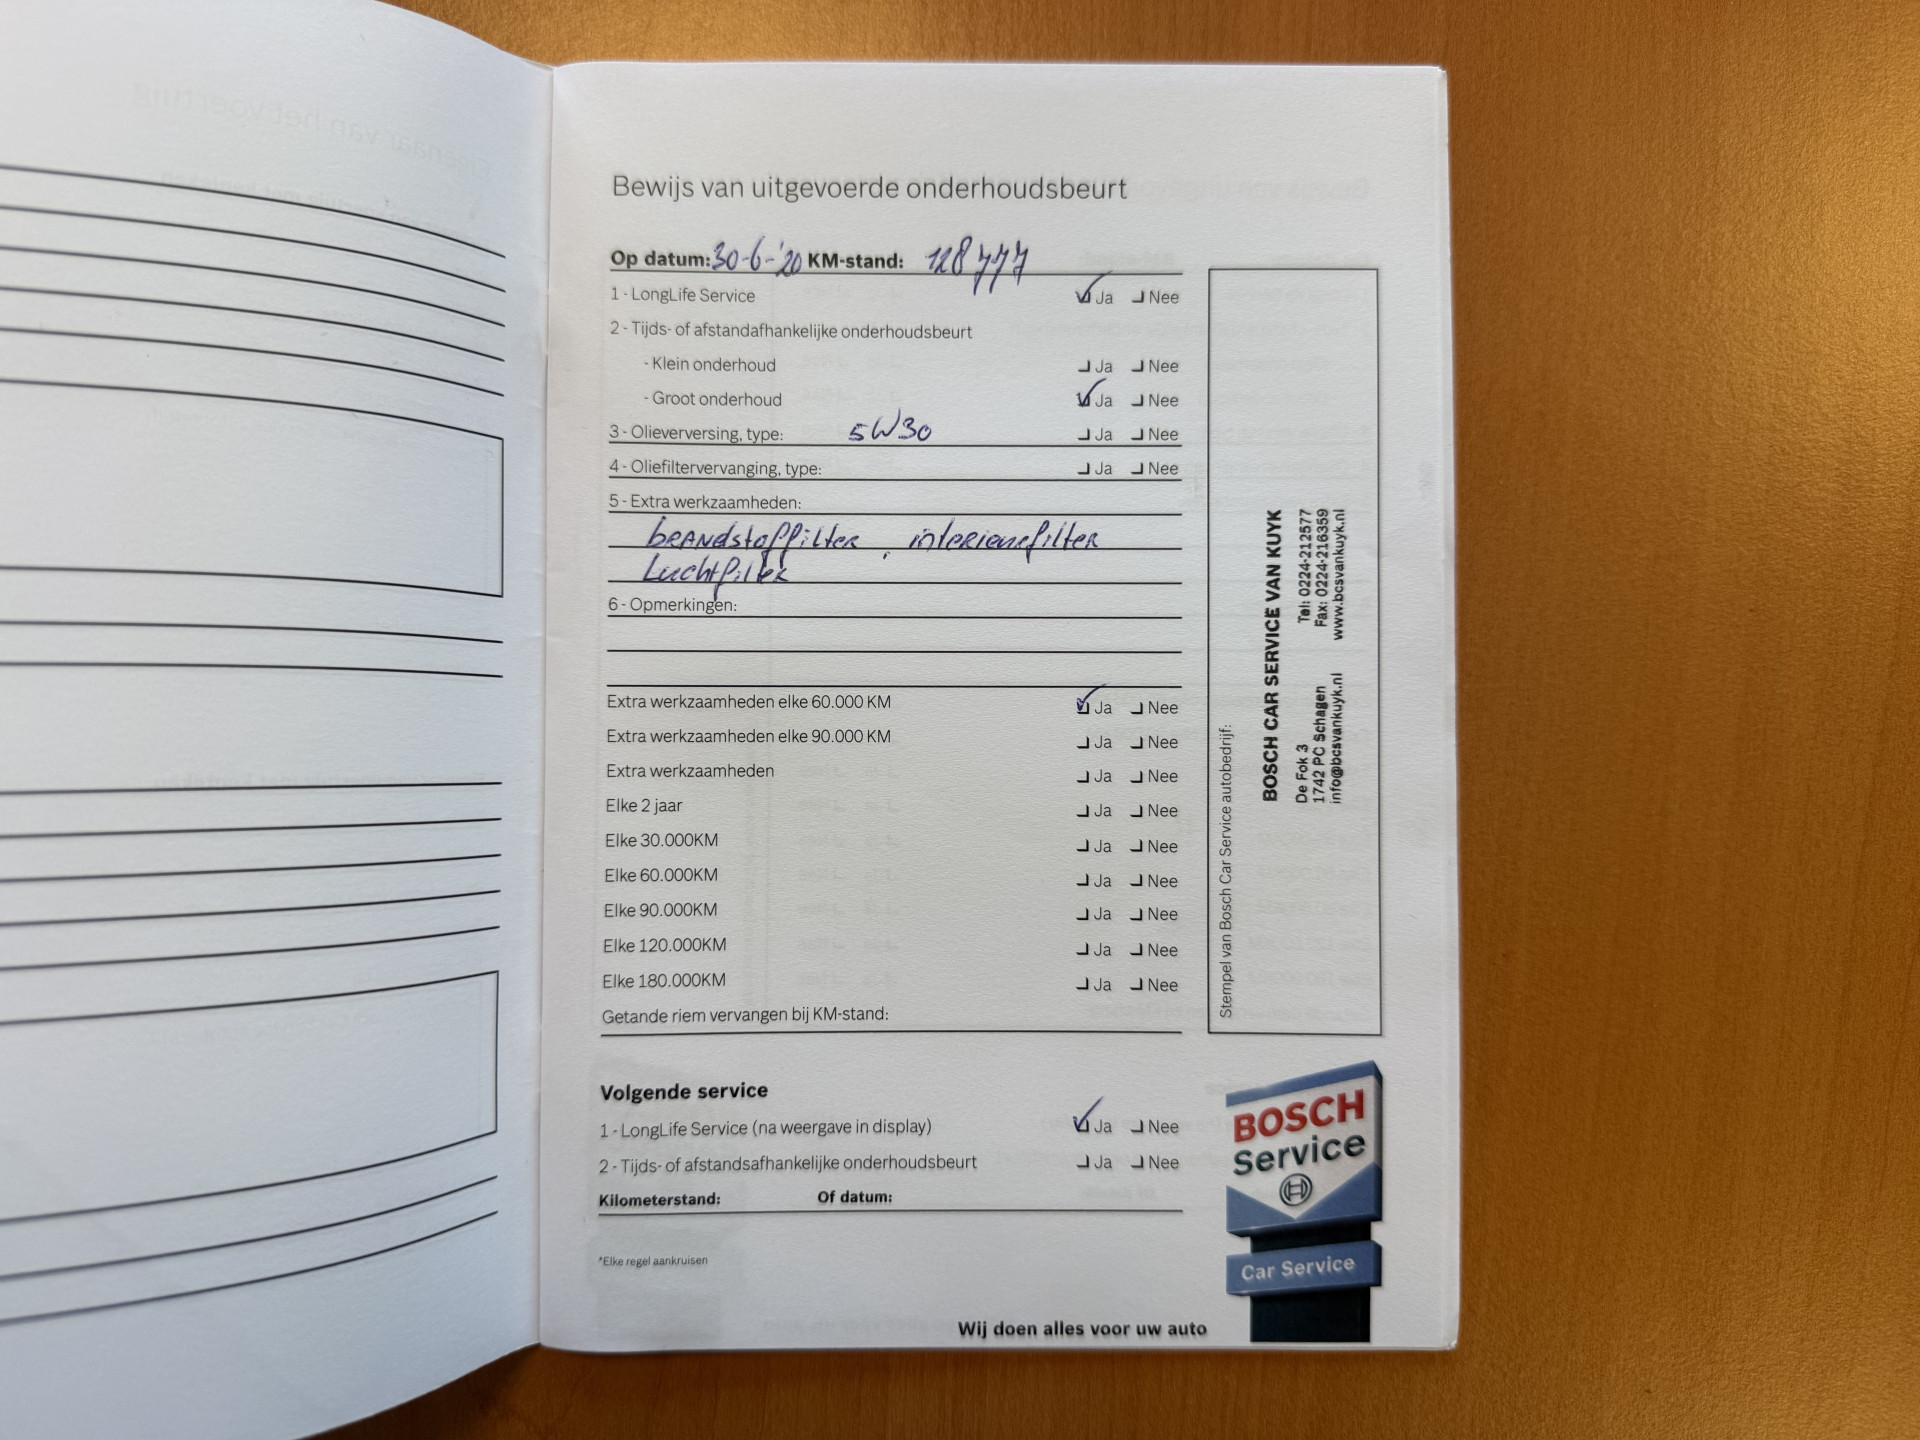 Bewijs van uitgevoerde onderhoudsbeurt
Op datum: 30-6-'20 KM-stand: 128777
1 - LongLife Service Ja Nee
2 - Tijds- of afstandafhankelijke onderhoudsbeurt
- Klein onderhoud Ja Nee
- Groot onderhoud Ja Nee
3 - Olieverversing, type: 5W30 Ja Nee
4 - Oliefiltervervanging, type: Ja Nee
5 - Extra werkzaamheden:
brandstoffilter, interieurfilter
Luchtfilter
6 - Opmerkingen:
Extra werkzaamheden elke 60.000 KM Ja Nee
Extra werkzaamheden elke 90.000 KM Ja Nee
Extra werkzaamheden Ja Nee
Elke 2 jaar Ja Nee
Elke 30.000KM Ja Nee
Elke 60.000KM Ja Nee
Elke 90.000KM Ja Nee
Elke 120.000KM Ja Nee
Elke 180.000KM Ja Nee
Getande riem vervangen bij KM-stand:
Stempel van Bosch Car Service autobedrijf:
BOSCH CAR SERVICE VAN KUYK
De Fok 3 Tel: 0224-212577
1742 PC Schagen Fax: 0224-216359
info@bcsvankuyk.nl www.bcsvankuyk.nl
Volgende service
1 - LongLife Service (na weergave in display) Ja Nee
2 - Tijds- of afstandsafhankelijke onderhoudsbeurt Ja Nee
Kilometerstand: Of datum:
*Elke regel aankruisen
BOSCH
Service
Car Service
Wij doen alles voor uw auto